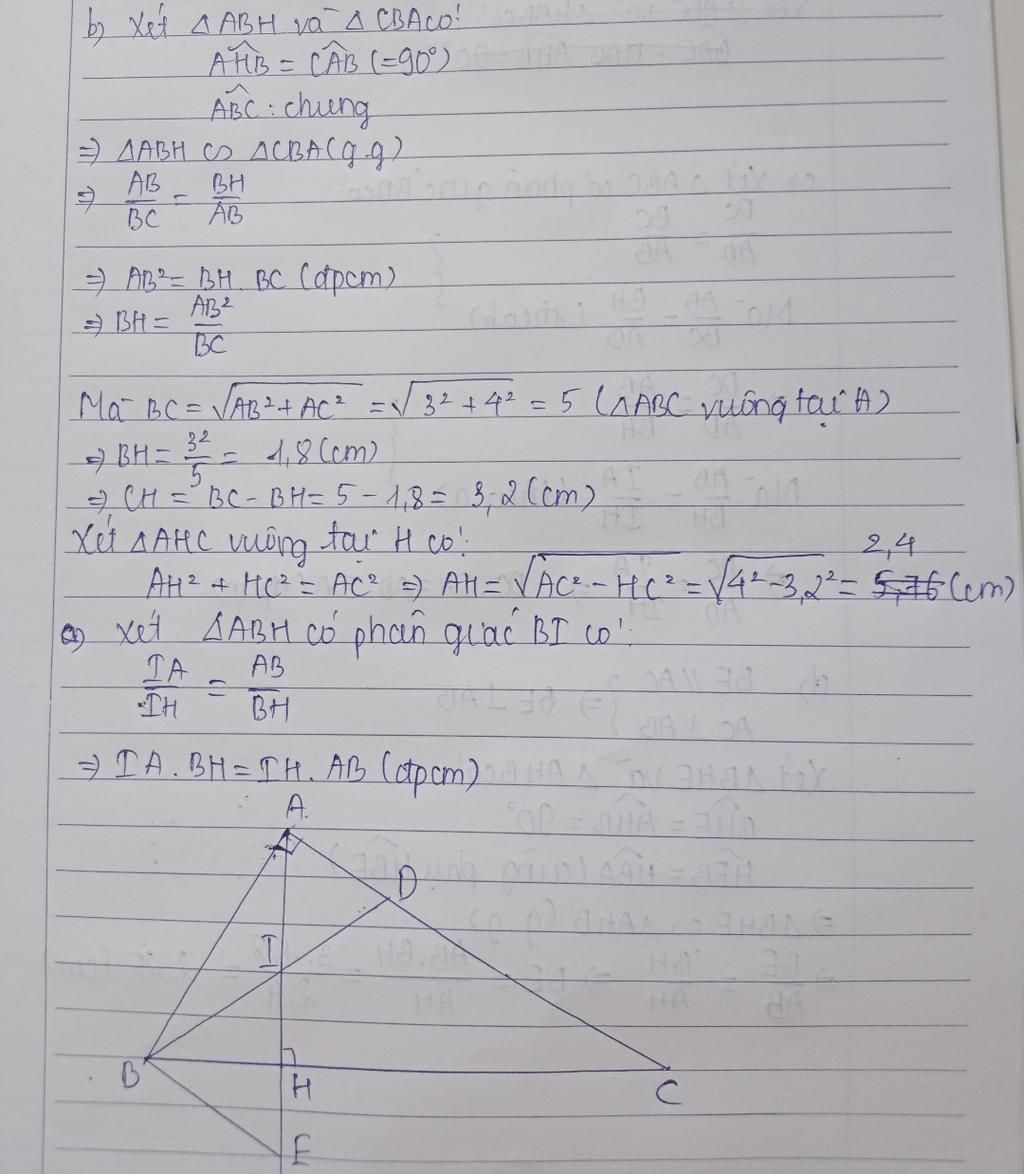 b) Xét △ABH và △CBA có:
AĤB = CÂB (=90°)
AB̂C : chung
⇒ △ABH ∽ △CBA (g.g)
⇒ AB/BC = BH/AB
⇒ AB² = BH. BC (đpcm)
⇒ BH = AB²/BC
Mà BC = √(AB² + AC²) = √(3² + 4²) = 5 (△ABC vuông tại A)
⇒ BH = 3²/5 = 1,8 (cm)
⇒ CH = BC - BH = 5 - 1,8 = 3,2 (cm)
Xét △AHC vuông tại H có:
AH² + HC² = AC² ⇒ AH = √(AC² - HC²) = √(4² - 3,2²) = 2,4 (cm)
a) Xét △ABH có phân giác BI có:
IA/IH = AB/BH
⇒ IA. BH = IH. AB (đpcm)
A
D
I
B
H
C
E